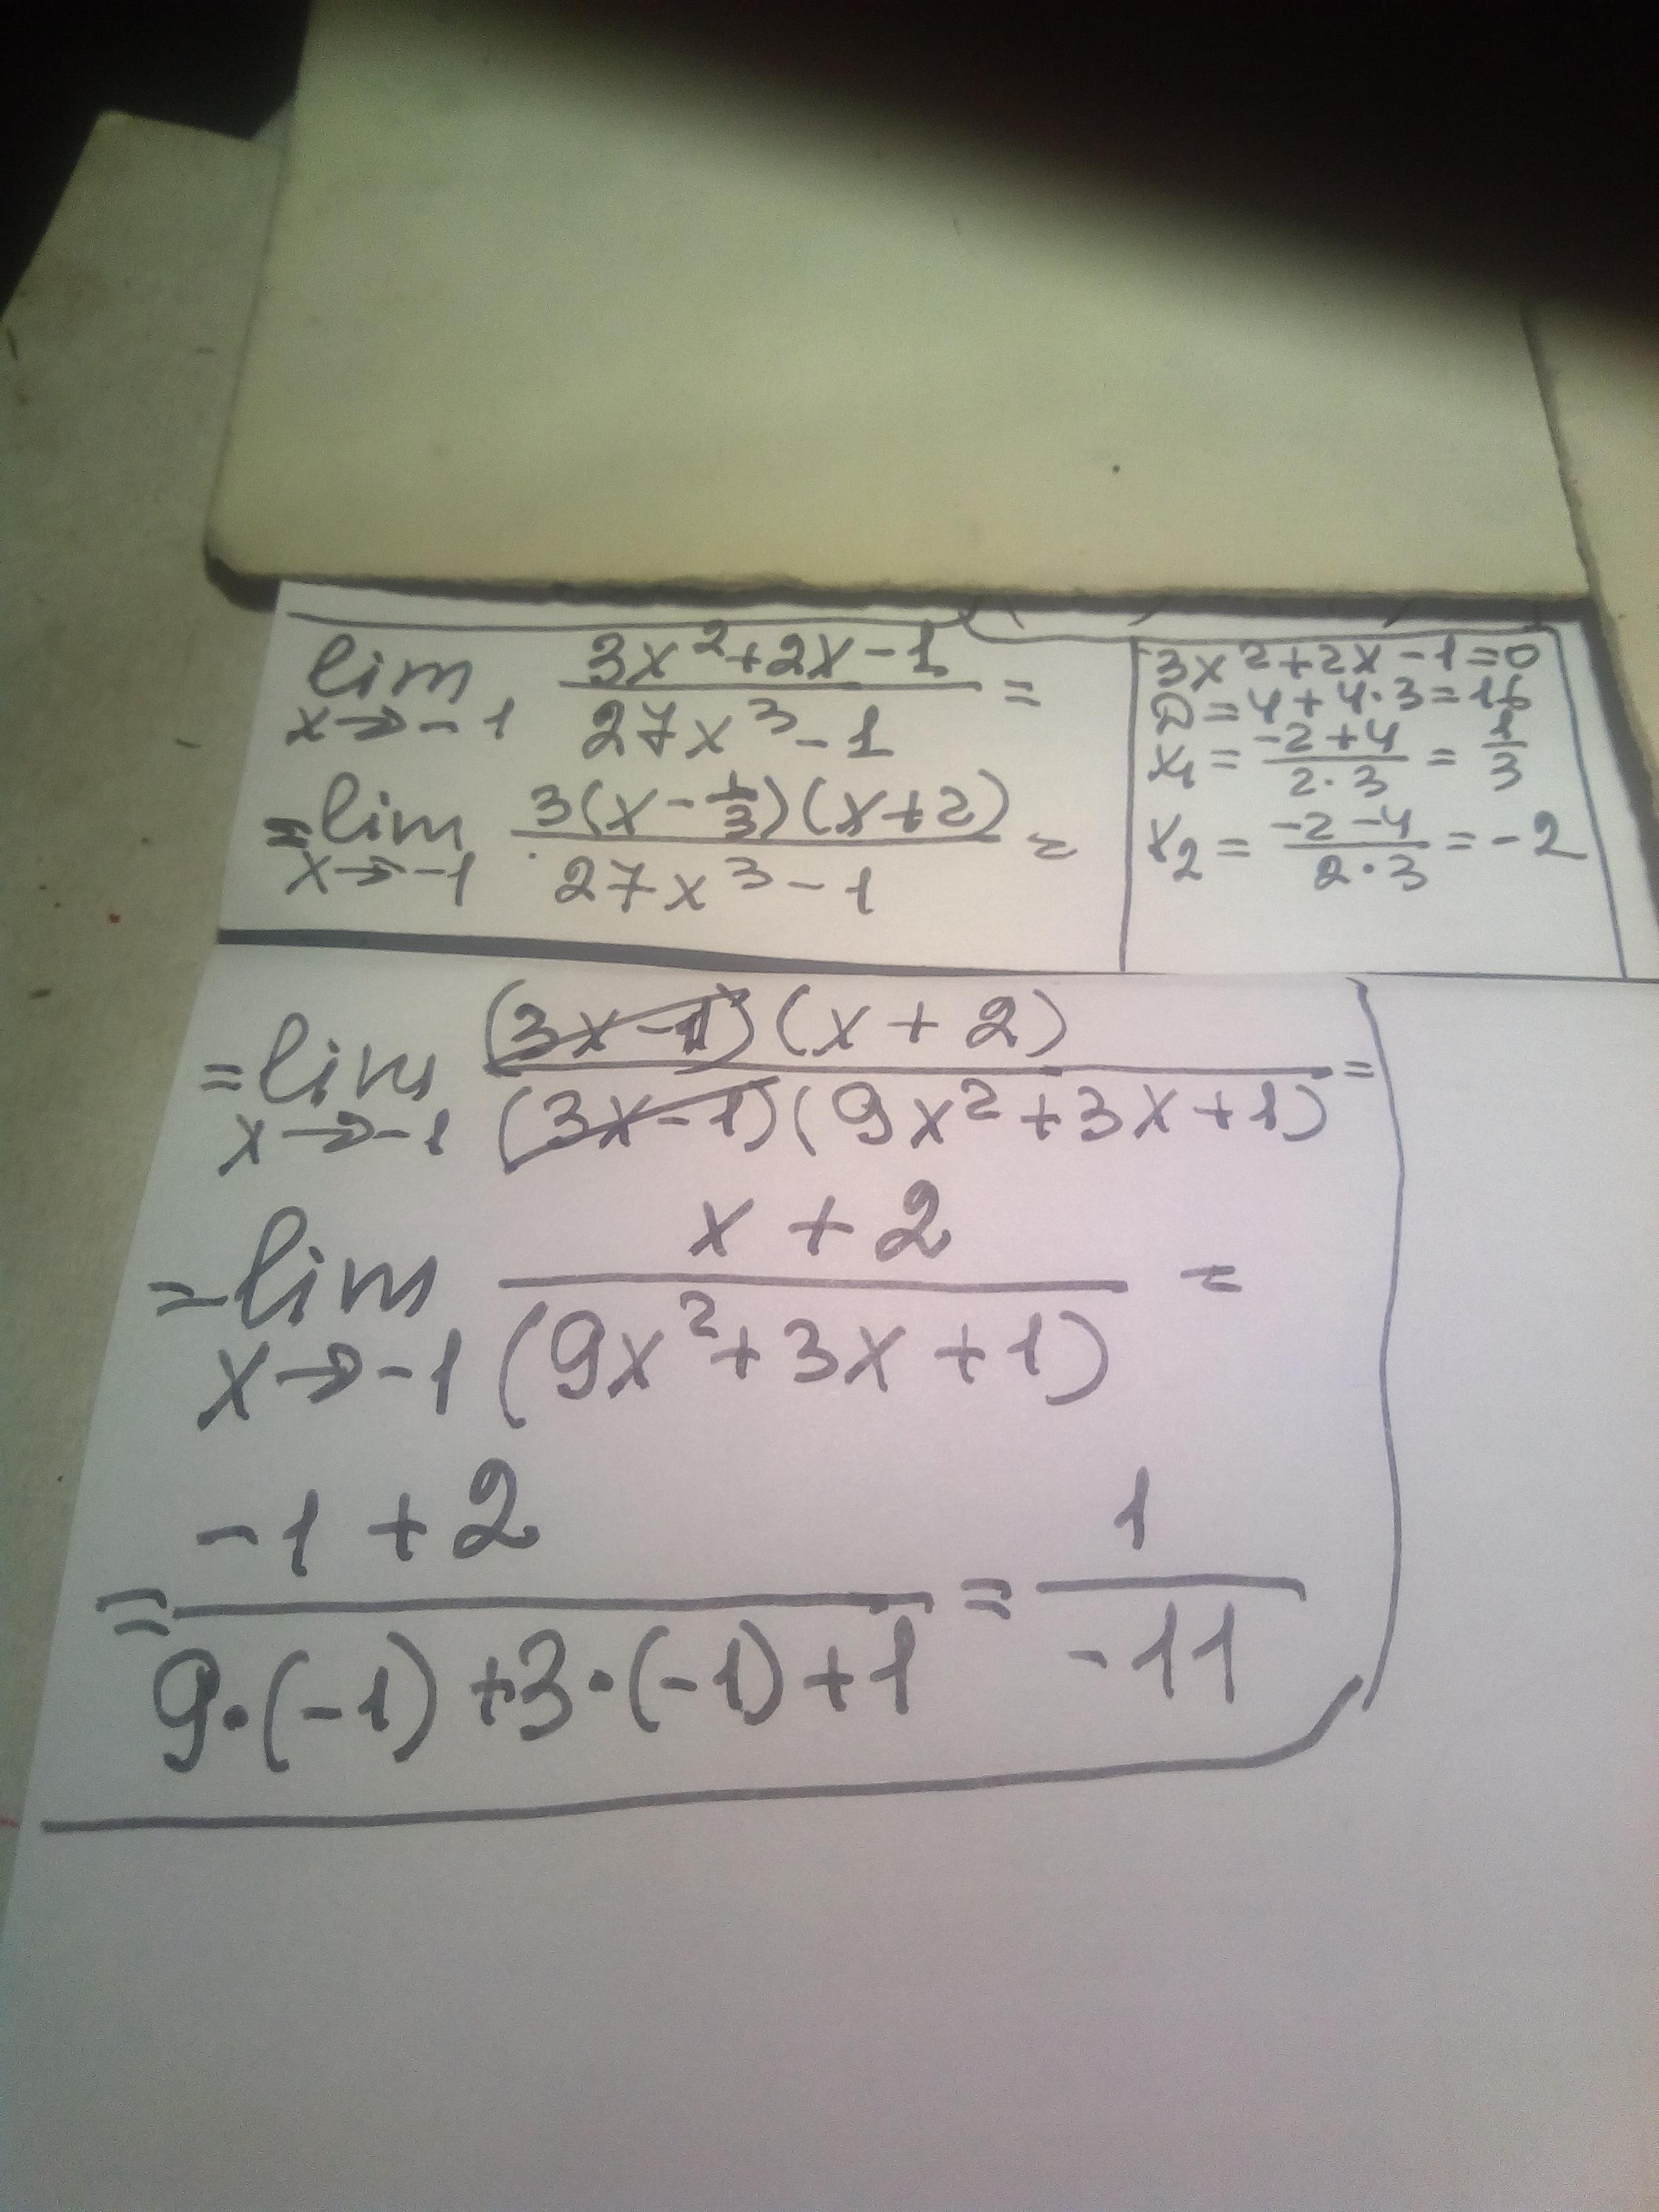 lim x→-1 (3x²+2x-1)/(27x³-1) =
= lim x→-1 (3(x-1/3)(x+2))/(27x³-1) =
3x²+2x-1=0
D=4+4·3=16
x₁=(-2+4)/(2·3)=1/3
x₂=(-2-4)/(2·3)=-2
= lim x→-1 ((3x-1)(x+2))/((3x-1)(9x²+3x+1)) =
= lim x→-1 (x+2)/(9x²+3x+1) =
= (-1+2)/(9·(-1)+3·(-1)+1) = 1/-11